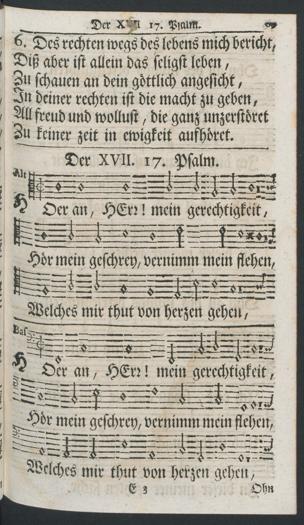 Der XVII 17. Psalm.
6. Des rechten wegs des lebens mich bericht,
Diß aber ist allein das seligst leben,
Zu schauen an dein göttlich angesicht,
In deiner rechten ist die macht zu geben,
All freud und wollust, die ganz unzerstöret
Zu keiner zeit in ewigkeit aufhöret.
Der XVII. 17. Psalm.
Alt
HOer an, HErr! mein gerechtigkeit,
Hör mein geschrey, vernimm mein flehen,
Welches mir thut von herzen gehen,
Bass
HOer an, HErr! mein gerechtigkeit,
Hör mein geschrey, vernimm mein flehen,
Welches mir thut von herzen gehen,
E 3 Ohn